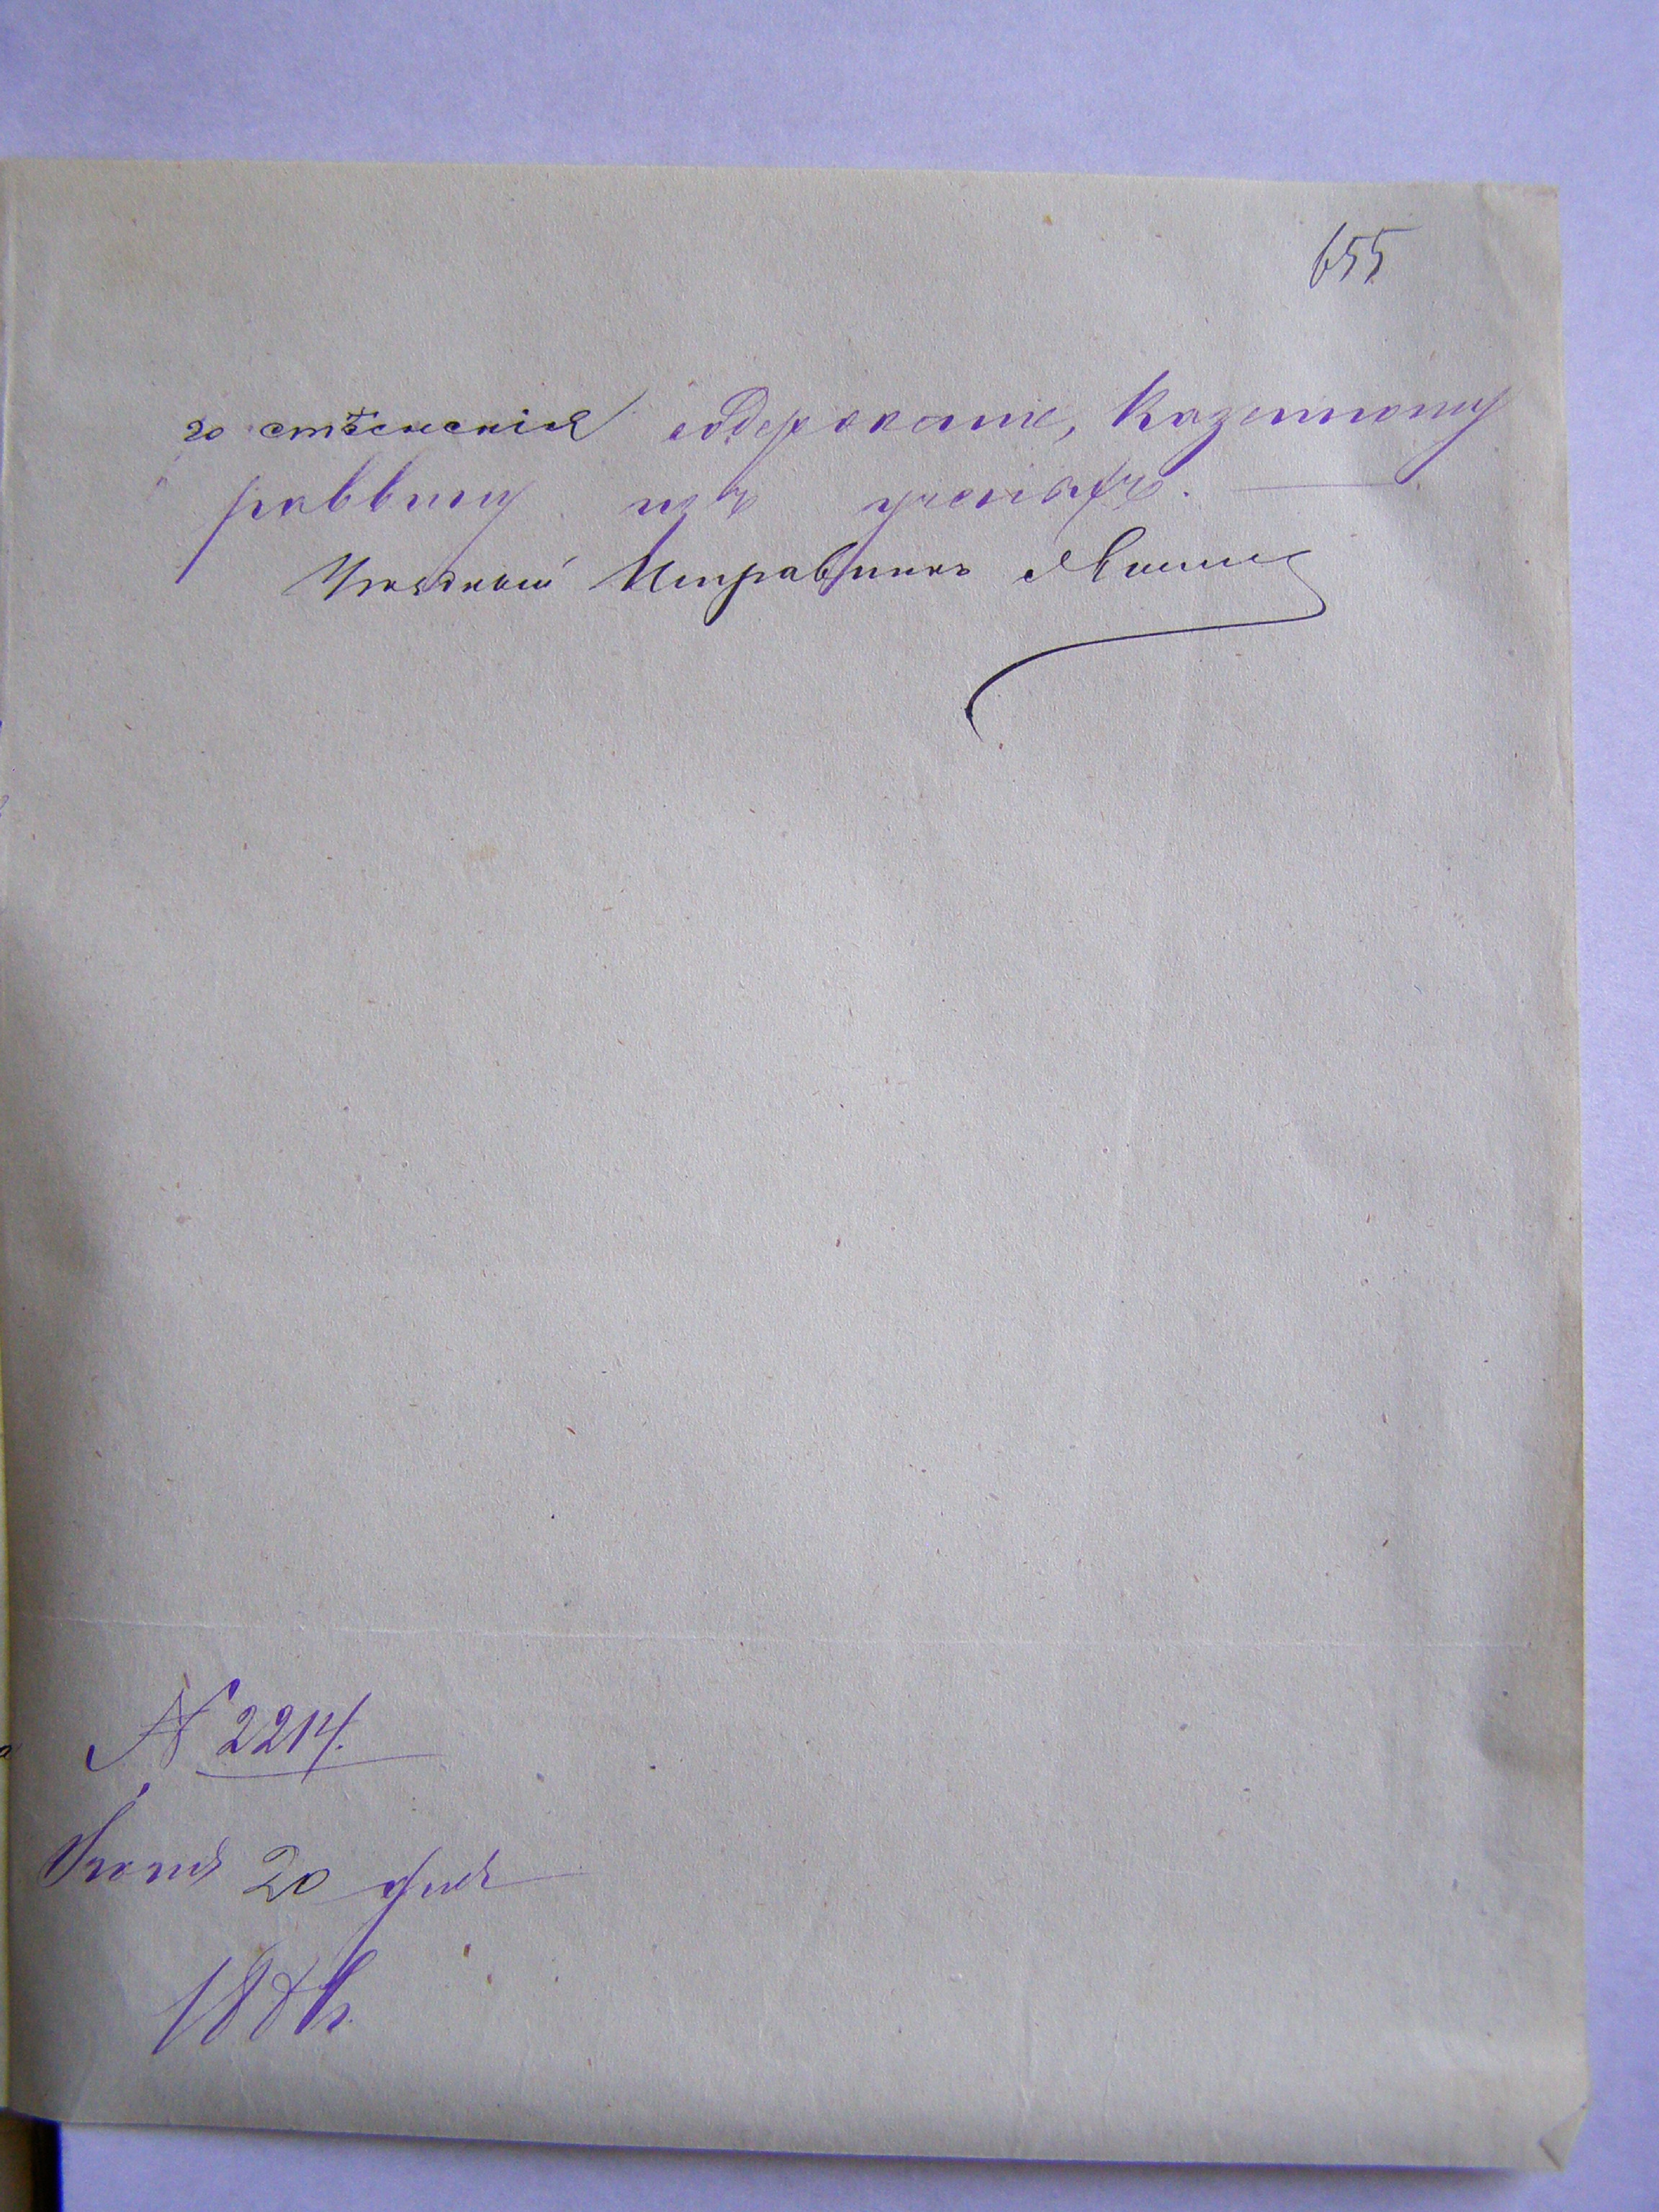 655
го стѣсненія содержанiе, Казенному
раввину изъ ученыхъ.
Уѣздный Исправникъ
№ 2214.
20 дня
188